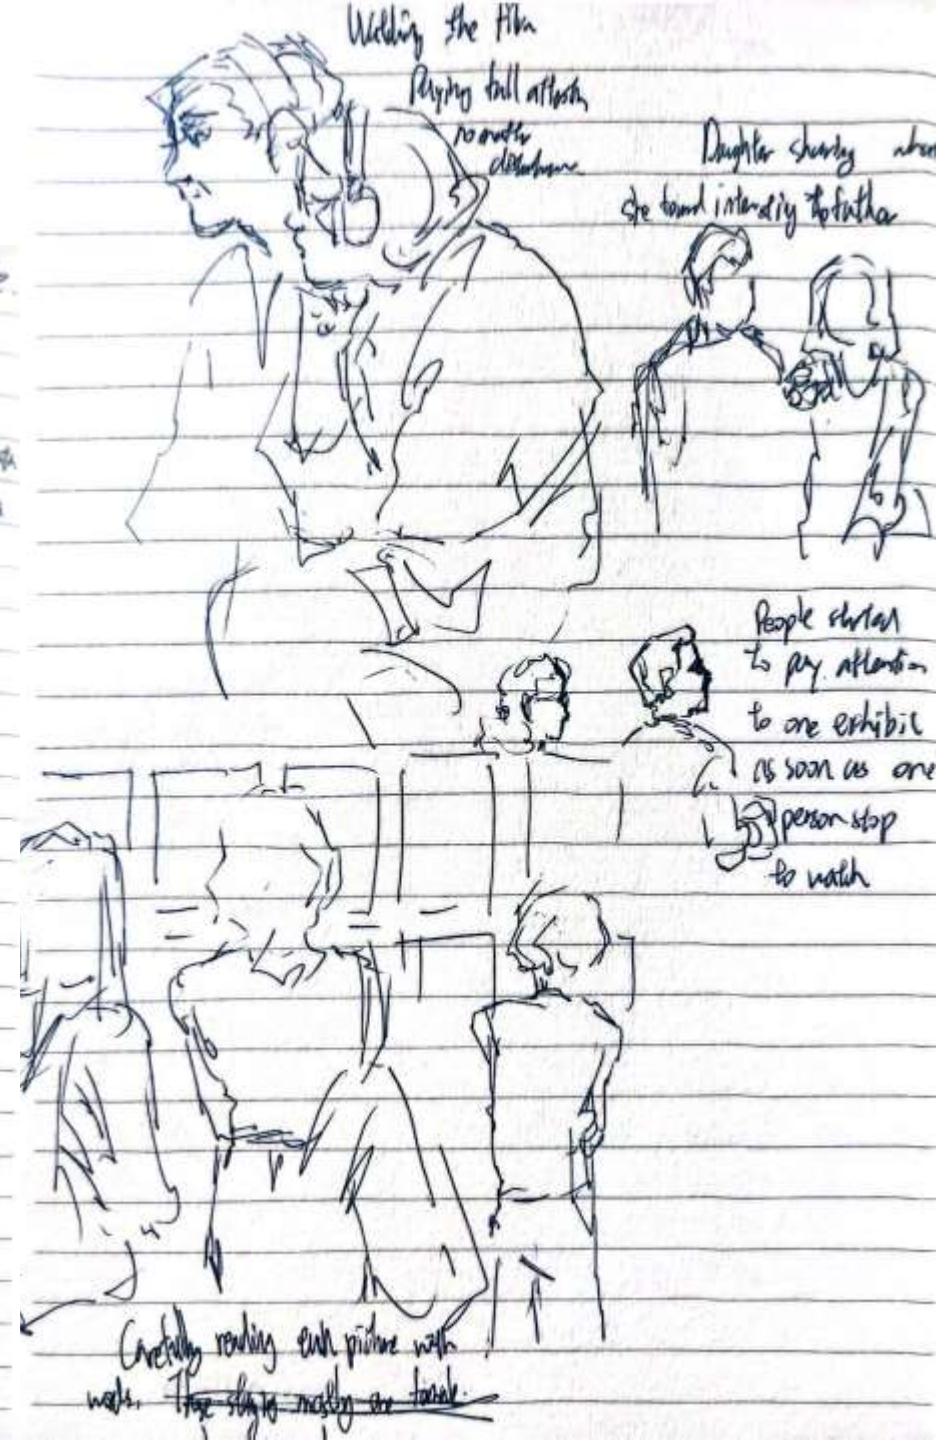 Watching the film
Paying full attention
no matter
Daughter sharing what
she found interesting to father
People started
to pay attention
to one exhibit
as soon as one
person stop
to watch
Carefully reading each picture with
words. Those staying mostly are